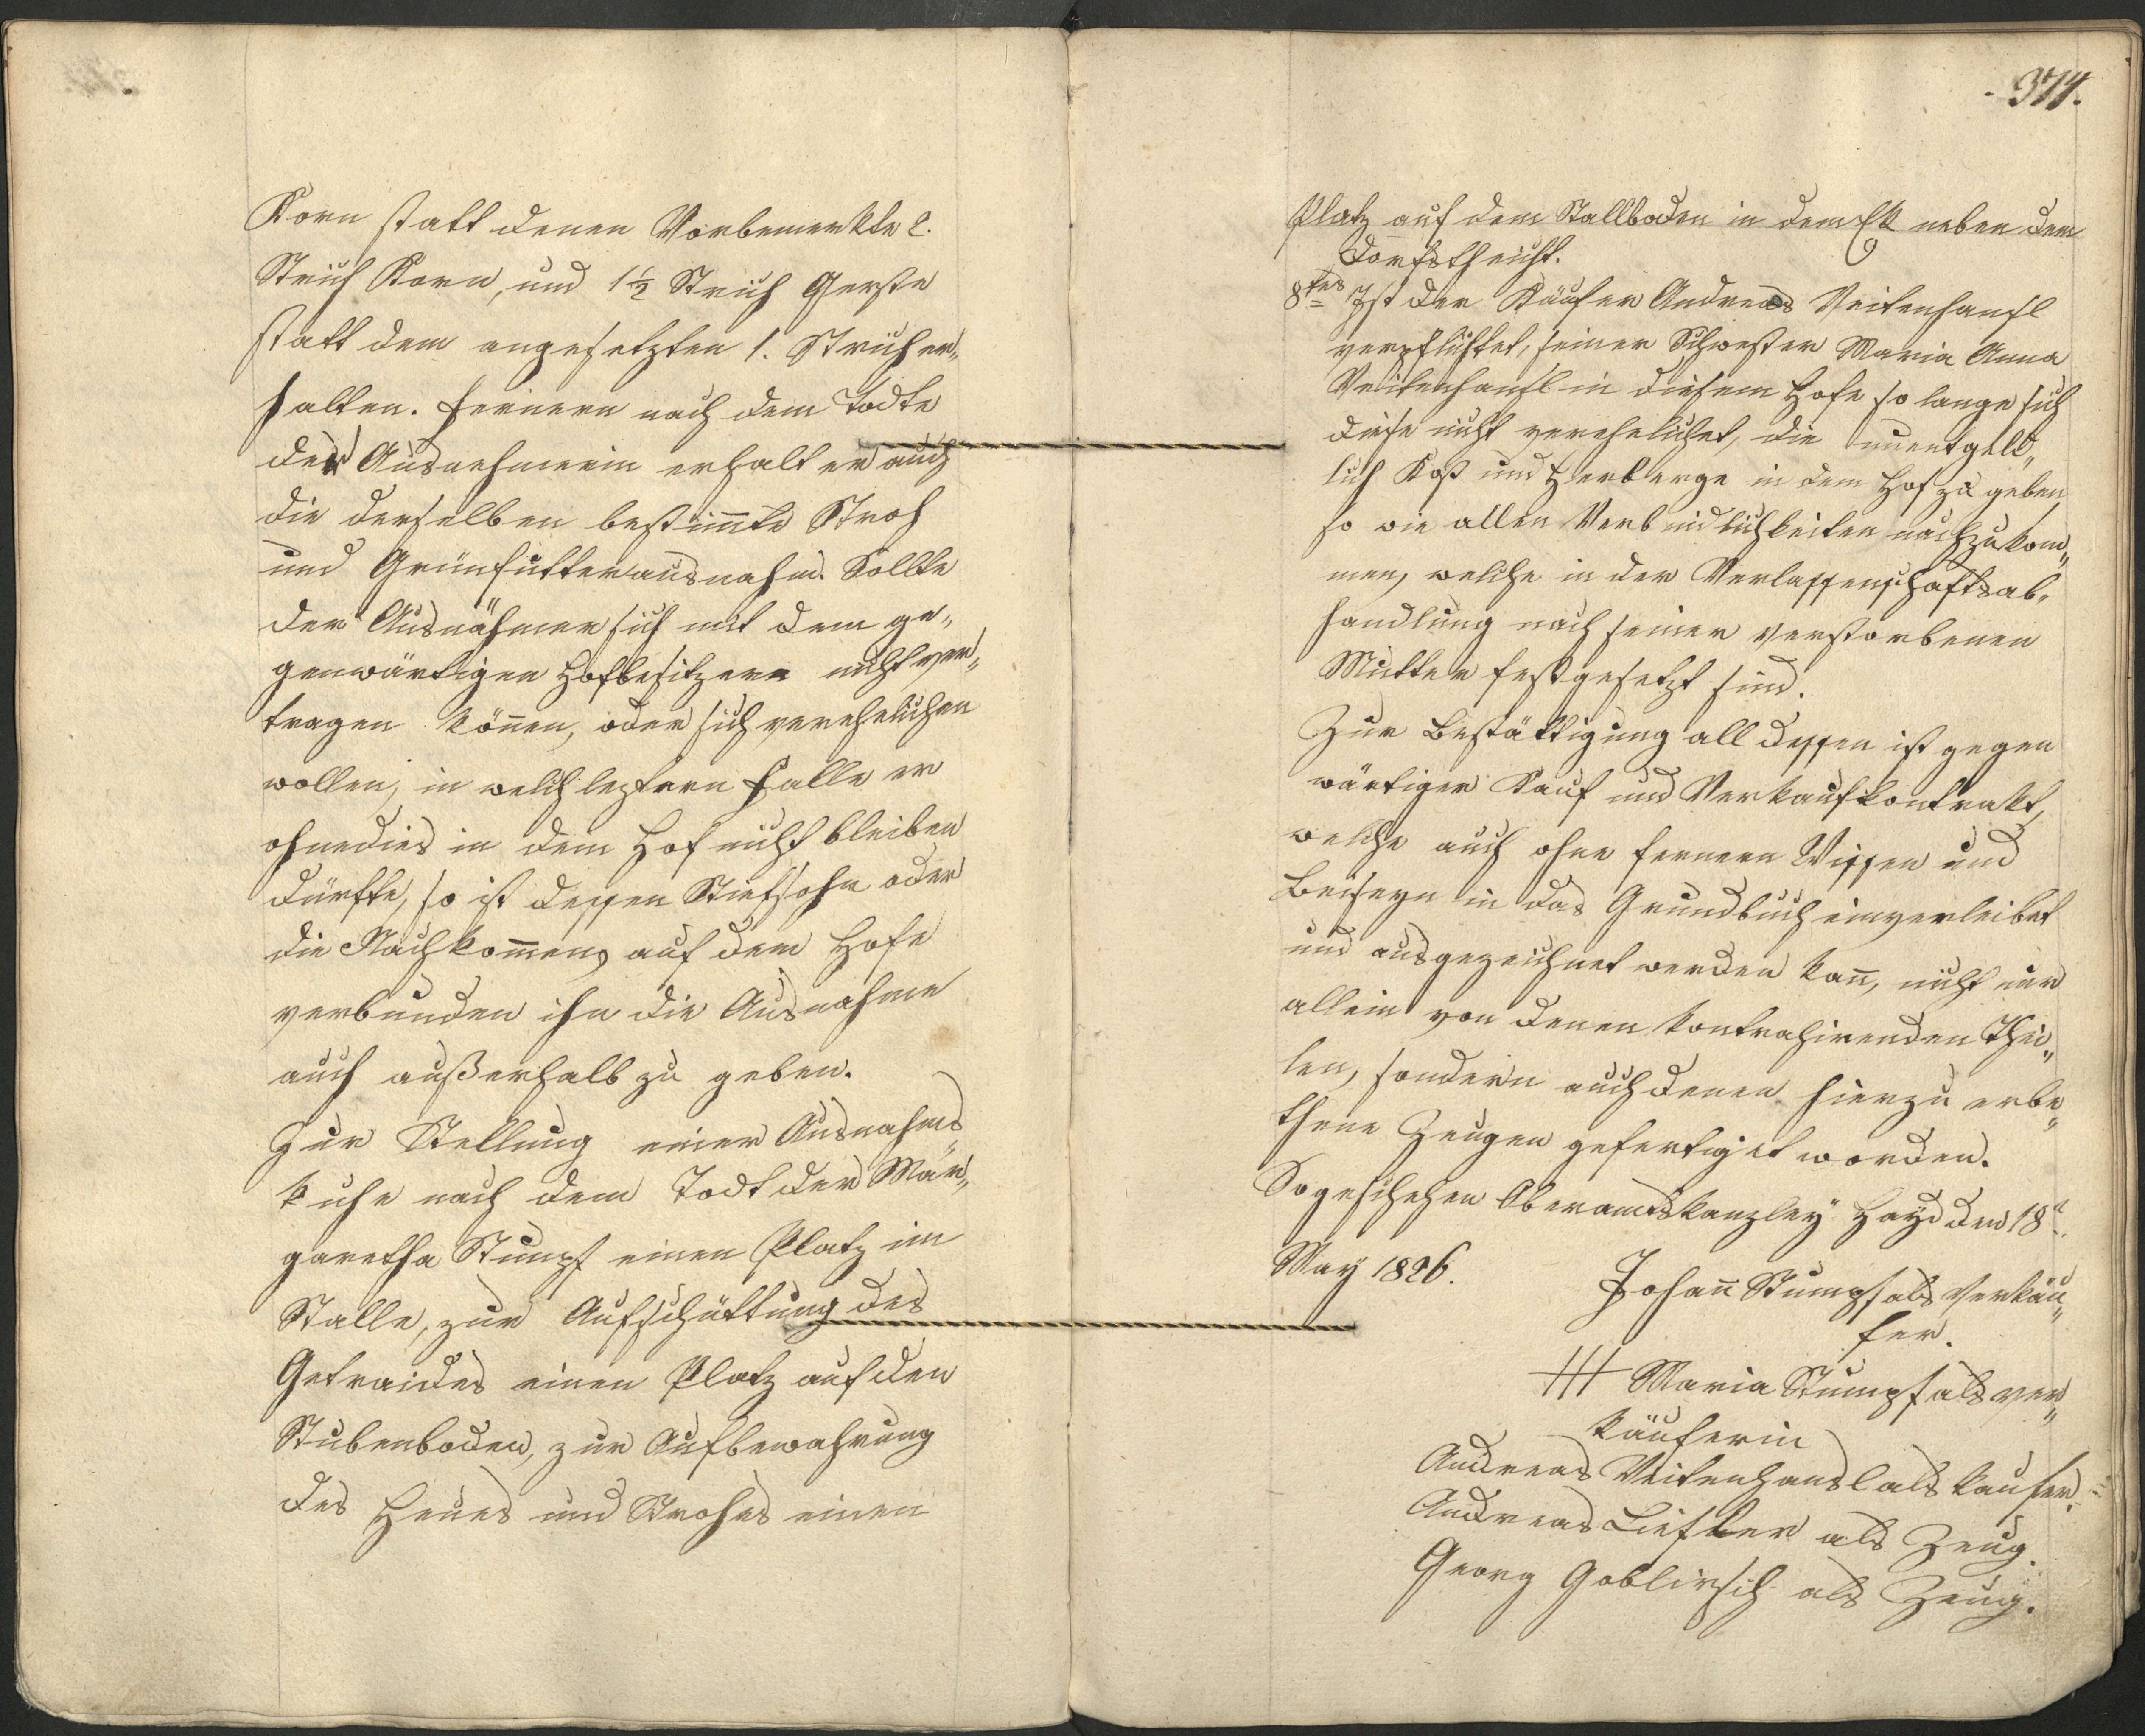 Korn statt denen Vorbemerkte 2.
Strich Korn, und 1½ Strich Gerste
statt dem angesetzten 1. Strich er„
halten. Fernern nach dem Todte
der Ausnehmerin erhalt er auch
die derselben bestim̅te Stroh
und Grünfutterausnahm. Sollte
der Ausnähmer sich mit dem ge„
genwärtigen Hofbesitzern nicht ver„
tragen kön̅en, oder sich verehelichen
wollen, in welch leztern Falle er
ohnedies in dem Hof nicht bleiben
dürfte, so ist dessen Stiefsohn oder
die Nachkom̅ens auf dem Hofe
verbunden ihn die Ausnahme
auch außerhalb zu geben.
Zur Stellung einer Ausnahms
kuhe nach dem Todt der Mar„
garetha Stumpf einen Platz im
Stalle, zur Aufschüttung des
Getraides einen Platz auf den
Stubenboden, zur Aufbewahrung
des Heues und Strohes einen
374.
Platz auf dem Stallboden in dem Ek neben dem
Dorfsteicht.
8tes Ist der Käufer Andreas Veitenhansl
verpflichtet, seiner Schwester Maria Anna
Veitenhansl in diesem Hofe so lange sich
diese nicht verehelichet, die unentgeld„
lich Kost und Herberge in dem Hof zu geben,
so wie allen Verbindlichkeiten nachzukom„
men, welche in der Verlassenschaftsab„
handlung nach seiner verstorbenen
Mutter festgesetzt sind.
Zur Bestättigung all dessen ist gegen
wärtiger Kauf und Verkaufkontrakt,
welche auch ohne fernern Wissen und
Beiseyn in das Grundbuch einverleibet
und ausgezeichnet werden kan̅, nicht nur
allein von denen kontrahirenden Thei„
len, sondern auch denen hierzu erbe„
thene Zeugen gefertigiet worden.
So geschehen Oberamtskanzley Hayd den 18t
May 1826.
Johan̅ Stumpf als Verkäu„
fer.
+++ Maria Stumpf als ver„
käuferin
Andreas Veitenhansl als kaufer.
Andreas Liefler als Zeug.
Georg Goblirsch als Zeug.